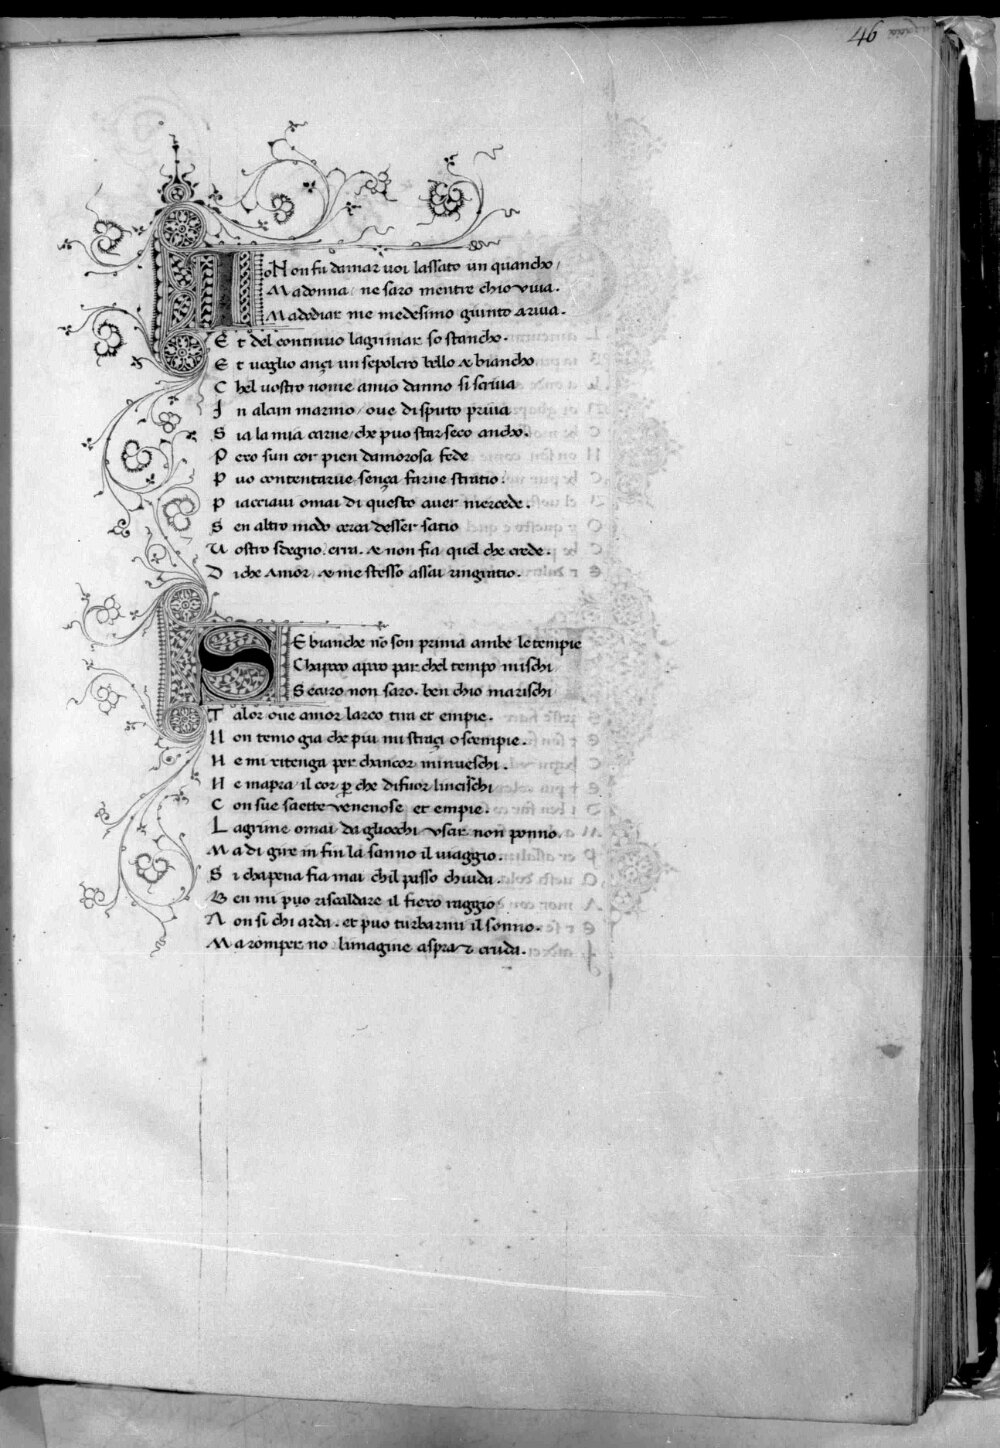 46
IoN on fu damar uoi lassato un quancho /
Madonna / ne saro mentre chio viua .
Ma dodiar me medesimo giunto a riua .
Et del continuo lagrimar so stancho .
Et uoglio ançi un sepolcro bello & biancho
Chel uostro nome a mio danno si scriua
In alcun marmo / oue di spirto priua
Sia la mia carne / che puo star seco ancho .
Pero sun cor pien damorosa fede
Puo contentarue / sença farne stratio .
Piacciaui omai di questo auer mercede .
Sen altro modo cerca desser satio
Uostro sdegno / erra . & non fia quel che crede .
Di che Amor / & me stesso assai ringratio .
SE bianche nõ son prima ambe le tempie
Cha poco a poco par chel tempo mischi
Securo non saro . ben chio marischi
Talor oue amor larco tira et empie .
Non temo gia che piu mi straçi o scempie .
Ne mi ritenga per chancor minueschi .
Ne mapra / il cor p̱ che difuor lincischi
Con sue saette venenose et empie .
Lagrime omai / da gliocchi vscir non ponno .
Ma di gire in fin la sanno il uiaggio .
Si chapena fia mai chil passo chiuda .
Ben mi puo riscaldare il fiero raggio
Non si chi arda . et puo turbarmi il sonno .
Ma romper no / limagine aspra & cruda .